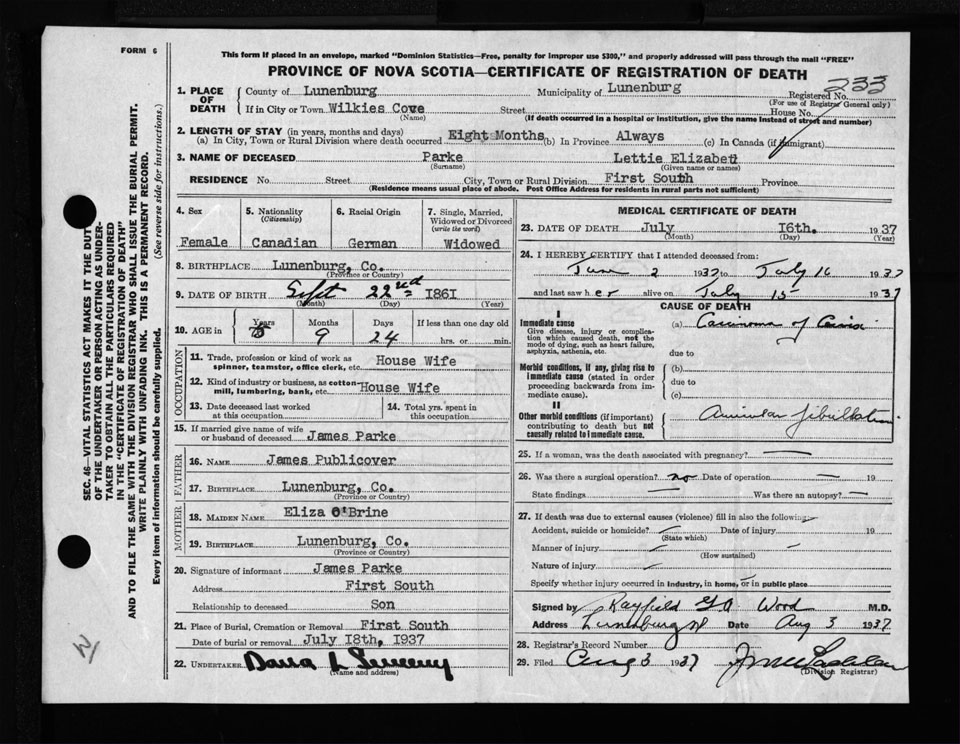 FORM 6
This form if placed in an envelope, marked "Dominion Statistics—Free, penalty for improper use $300," and properly addressed will pass through the mail "FREE"
PROVINCE OF NOVA SCOTIA—CERTIFICATE OF REGISTRATION OF DEATH
233
1. PLACE OF DEATH
County of Lunenburg Municipality of Lunenburg Registered No.
(For use of Registrar General only)
If in City or Town Wilkies Cove Street House No.
(Name) (If death occurred in a hospital or institution, give the name instead of street and number)
2. LENGTH OF STAY (in years, months and days)
(a) In City, Town or Rural Division where death occurred Eight Months (b) In Province Always (c) In Canada (if immigrant)
3. NAME OF DECEASED Parke Lettie Elizabett
(Surname) (Given name or names)
RESIDENCE No. Street City, Town or Rural Division First South Province
(Residence means usual place of abode. Post Office Address for residents in rural parts not sufficient)
4. Sex Female
5. Nationality (Citizenship) Canadian
6. Racial Origin German
7. Single, Married, Widowed or Divorced (write the word) Widowed
8. BIRTHPLACE Lunenburg, Co.
(Province or Country)
9. DATE OF BIRTH Sept 22nd 1861
(Month) (Day) (Year)
10. AGE in Years Months Days If less than one day old
9 24 hrs. or min.
OCCUPATION
11. Trade, profession or kind of work as spinner, teamster, office clerk, etc. House Wife
12. Kind of industry or business, as cotton mill, lumbering, bank, etc. House Wife
13. Date deceased last worked at this occupation
14. Total yrs. spent in this occupation
15. If married give name of wife or husband of deceased James Parke
FATHER
16. NAME James Publicover
17. BIRTHPLACE Lunenburg, Co.
(Province or Country)
MOTHER
18. MAIDEN NAME Eliza O'Brine
19. BIRTHPLACE Lunenburg, Co.
(Province or Country)
20. Signature of informant James Parke
Address First South
Relationship to deceased Son
21. Place of Burial, Cremation or Removal First South
Date of burial or removal July 18th, 1937
22. UNDERTAKER
(Name and address)
MEDICAL CERTIFICATE OF DEATH
23. DATE OF DEATH July 16th. 1937
(Month) (Day) (Year)
24. I HEREBY CERTIFY that I attended deceased from:
2 1932 to July 16 1937
and last saw her alive on July 15 1937
CAUSE OF DEATH
I
Immediate cause
Give disease, injury or complication which caused death, not the mode of dying, such as heart failure, asphyxia, asthenia, etc.
(a) Carcinoma of
due to
Morbid conditions, if any, giving rise to immediate cause (stated in order proceeding backwards from immediate cause).
(b)
due to
(c)
II
Other morbid conditions (if important) contributing to death but not causally related to immediate cause.
Auricular fibrillation
25. If a woman, was the death associated with pregnancy? —
26. Was there a surgical operation? no Date of operation — 19
State findings — Was there an autopsy? —
27. If death was due to external causes (violence) fill in also the following:
Accident, suicide or homicide? Date of injury 19
(State which)
Manner of injury
(How sustained)
Nature of injury
Specify whether injury occurred in industry, in home, or in public place
Signed by Rayfield G A Wood M.D.
Address Lunenburg NS Date Aug 3 1937
28. Registrar's Record Number
29. Filed Aug 3 1937
(Division Registrar)
SEC. 46—VITAL STATISTICS ACT MAKES IT THE DUTY
OF THE UNDERTAKER OR PERSON ACTING AS UNDER-
TAKER TO OBTAIN ALL THE PARTICULARS REQUIRED
IN THE "CERTIFICATE OF REGISTRATION OF DEATH"
AND TO FILE THE SAME WITH THE DIVISION REGISTRAR WHO SHALL ISSUE THE BURIAL PERMIT.
WRITE PLAINLY WITH UNFADING INK. THIS IS A PERMANENT RECORD.
Every item of information should be carefully supplied. (See reverse side for instructions.)